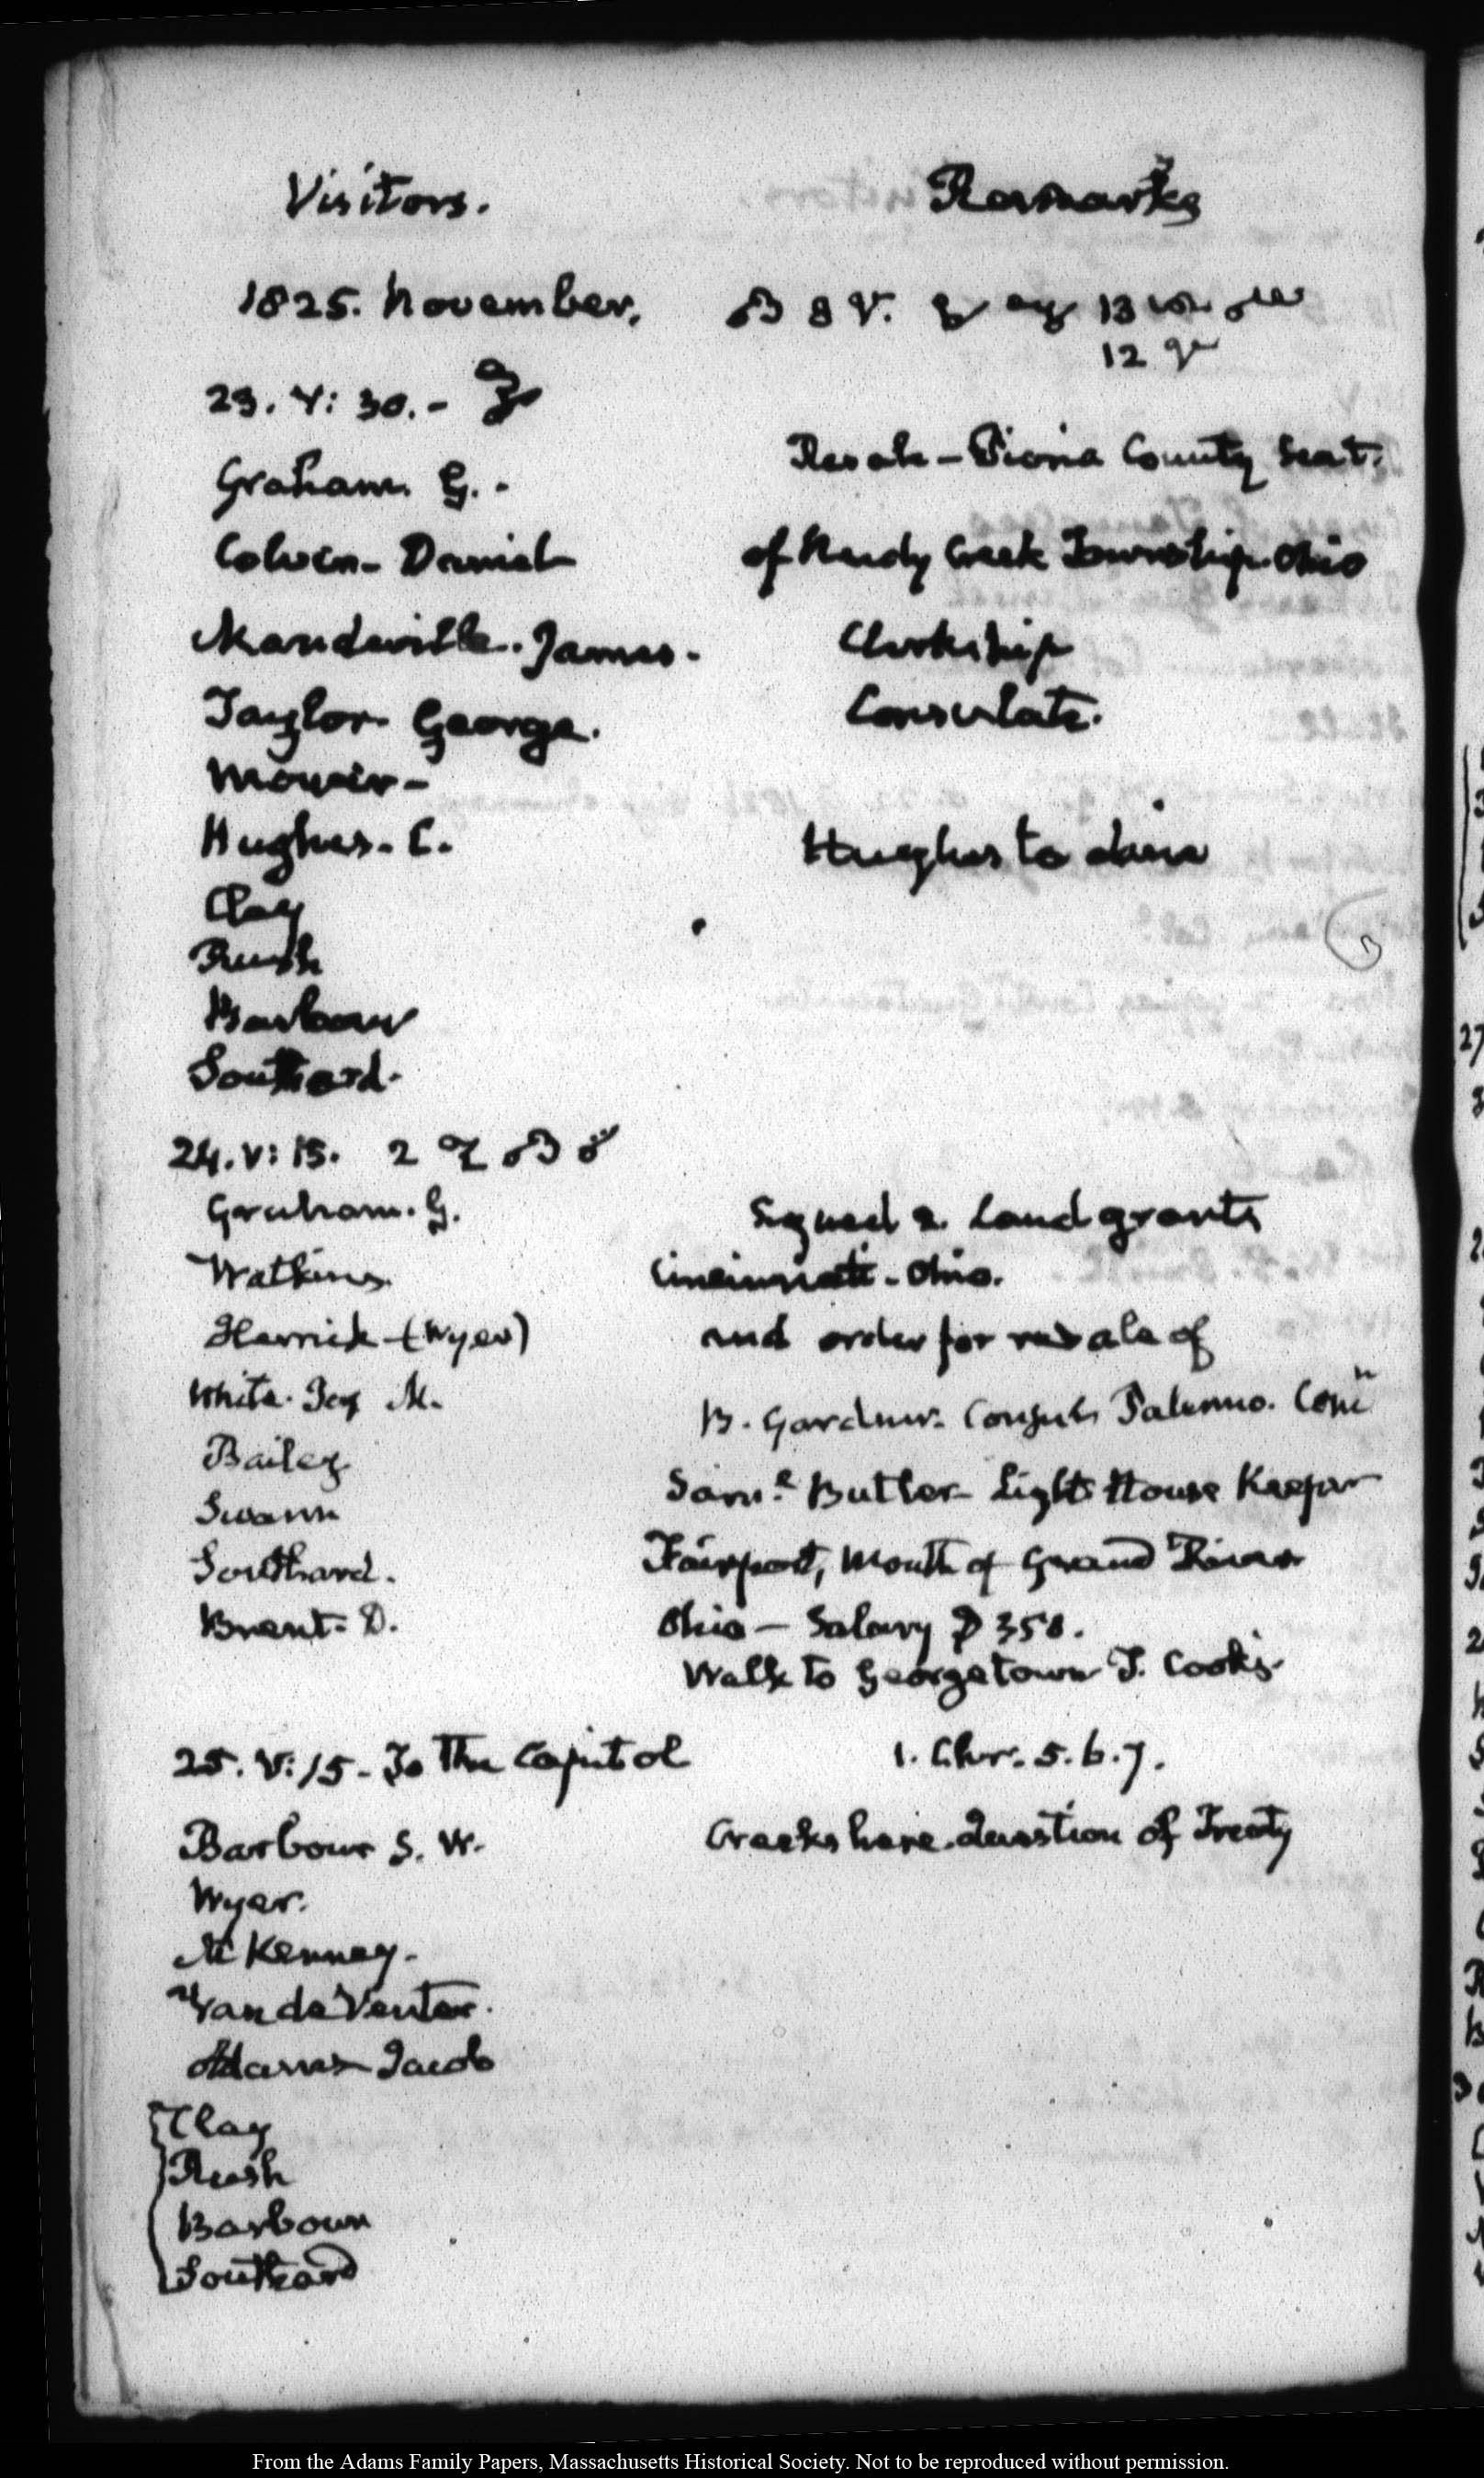 Visitors. Remarks
1825. November.
23. V: 30. -
Graham. G. - Resale - County Seat.
Colvin - Daniel of Creek Township. Ohio
Mandeville. James. Clerkship
Taylor. George. Consulate.
Mower -
Hughes. C. Hughes to dine
Clay
Rush
Barbour
Southard.
24. V: 15. 2
Graham. G. Signed 2. Land grants
Watkins Cincinnati - Ohio.
Herrick - (Wyer) and order for resale of
White. M. B. Gardner. Consul Palermo.
Bailey Saml. Butler - Light House Keeper
Swann Fairport, Mouth of Grand River
Southard. Ohio - Salary D 350.
Brent - D. Walk to Georgetown J. Cook's.
25. V: 15 - To the Capitol 1. Chr: 5. 6. 7.
Barbour S. W. Creeks here. Question of Treaty
Wyer.
McKenney.
Van de Venter.
Adams Jacob
Clay
Rush
Barbour
Southard
From the Adams Family Papers, Massachusetts Historical Society. Not to be reproduced without permission.